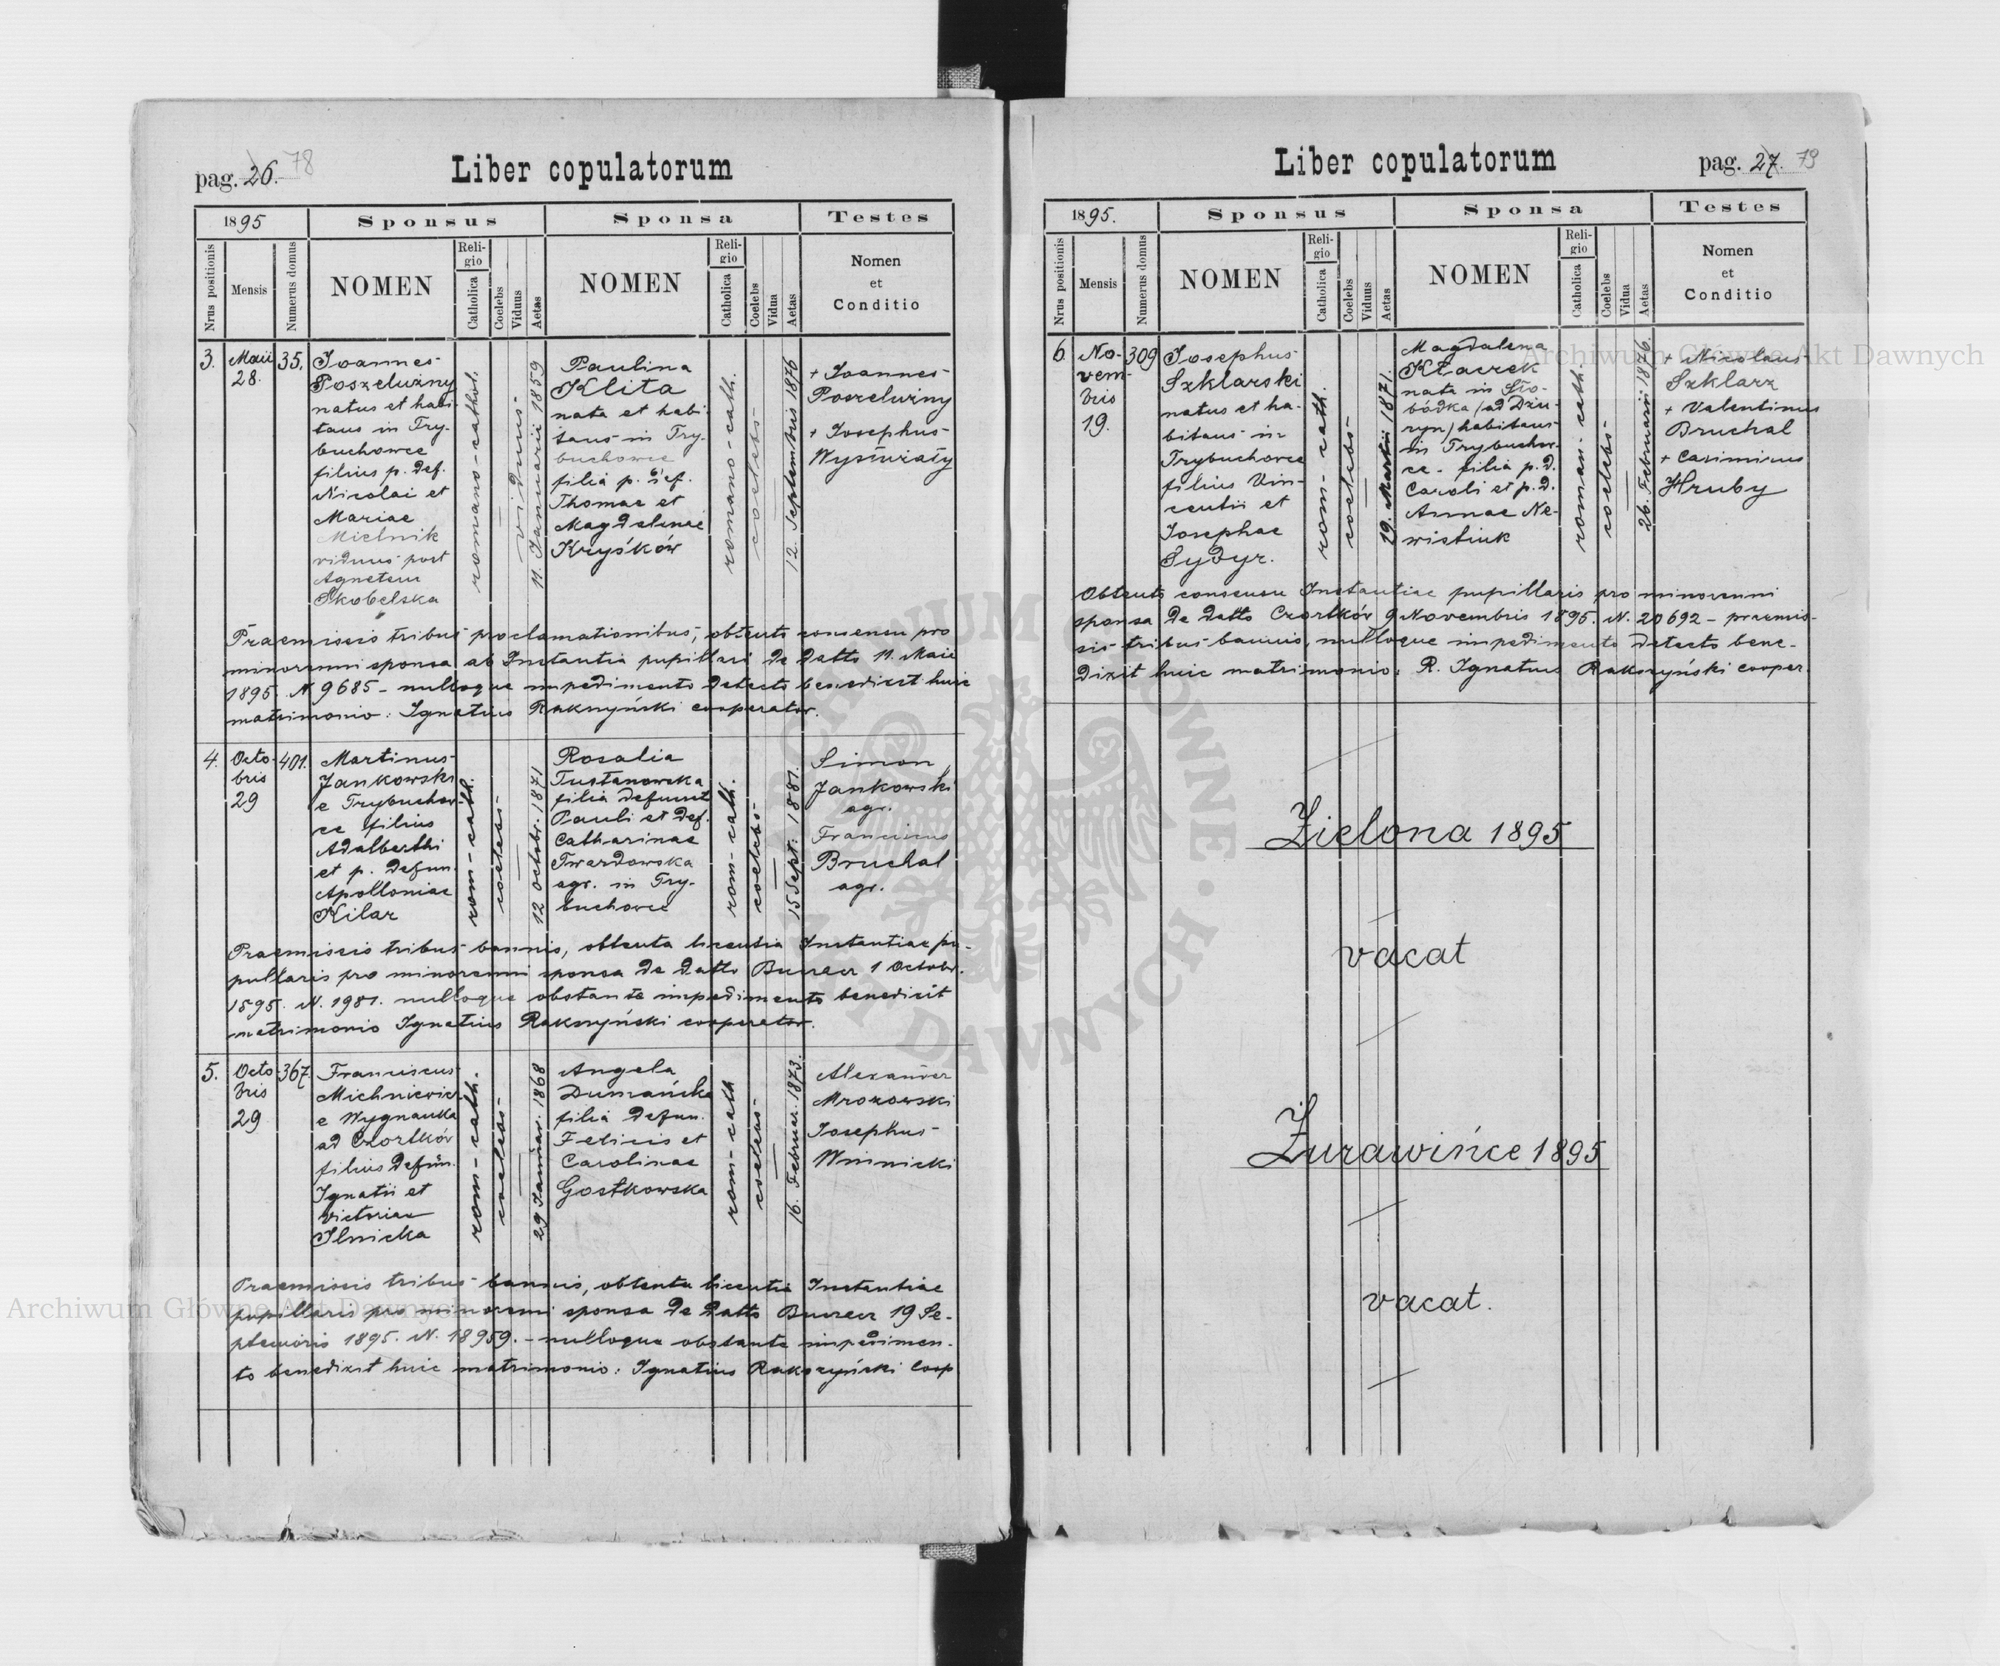 pag. 26. 78
Liber copulatorum
1895
Sponsus
Sponsa
Testes
Nrus positionis
Mensis
Numerus domus
NOMEN
Religio
Catholica
Coelebs
Viduus
Aetas
NOMEN
Religio
Catholica
Coelebs
Vidua
Aetas
Nomen
et
Conditio
3.
Maii
28.
35.
Joannes
Poszelużny
natus et habi-
tans in Try-
buchowce
filius p. def.
Nicolai et
Mariae
Mielnik
viduus post
Agnetem
Skobelska
romano-cathol.
viduus
11. Januarii 1859
Paulina
Klita
nata et habi-
tans in Try-
buchowce
filia p. def.
Thomae et
Magdalenae
Kryśków
romano-cath.
coelebs
12. Septembris 1876
+ Joannes
Poszelużny
+ Josephus
Wyświaty
Praemissis tribus proclamationibus, obtento consensu pro
minorenni sponsa ab Instantia pupillari de datto 11. Maii
1895. N 9685 - nulloque impedimento detecto benedixit huic
matrimonio: Ignatius Rakszyński cooperator.
4.
Octo-
bris
29
401.
Martinus
Jankowski
e Trybuchow-
ce filius
Adalberthi
et p. defun.
Apolloniae
Kilar
rom-cath.
coelebs
12 octobr. 1871
Rosalia
Tustanowska
filia defunct
Pauli et def.
Catharinae
Twardowska
agr. in Try-
buchowce
rom-cath.
coelebs
15 Sept. 1881.
Simon
Jankowski
agr.
Franciscus
Bruchal
agr.
Praemissis tribus bannis, obtenta licentia Instantiae pu-
pillaris pro minorenni sponsa de datto Buczacz 1 Octobr.
1895. N. 1981. nulloque obstante impedimento benedixit
matrimonio Ignatius Rakszyński cooperator.
5.
Octo
bris
29
367
Franciscus
Michniewicz
e Wygnanka
ad Czortków
filius defun.
Ignatii et
Victoriae
Ilnicka
rom-cath.
coelebs
29 Januar. 1868
Angela
Dumańska
filia defun.
Felicis et
Carolinae
Gostkowska
rom-cath
coelebs
16. Februar. 1873.
Alexander
Mrozowski
Josephus
Winnicki
Praemissis tribus bannis, obtenta licentia Instantiae
pupillaris pro minorenni sponsa de datto Buczacz 19 Se-
ptembris 1895. N. 18959. - nulloque obstante impedimen-
to benedixit huic matrimonio: Ignatius Rakszyński Coop
Liber copulatorum
pag. 27. 79
1895.
Sponsus
Sponsa
Testes
Nrus positionis
Mensis
Numerus domus
NOMEN
Religio
Catholica
Coelebs
Viduus
Aetas
NOMEN
Religio
Catholica
Coelebs
Vidua
Aetas
Nomen
et
Conditio
6
No-
vem-
bris
19.
309
Josephus
Szklarski
natus et ha-
bitans in
Trybuchowce
filius Vin-
centii et
Josephae
Sydyr.
rom-cath.
coelebs
29. Martii 1871.
Magdalena
Kłaczek
nata in Sło-
bódka (ad Dżu-
ryn) habitans
in Trybuchow-
ce - filia p. d.
Caroli et p. d.
Annae Ne-
wistiuk
roman-cath.
coelebs
26. Februarii 1876.
+ Nicolaus
Szklarz
+ Valentinus
Bruchal
+ Casimirus
Hruby
Obtento consensu Instantiae pupillaris pro minorenni
sponsa de datto Czortków 9 Novembris 1895. N. 20692 - praemis-
sis tribus bannis, nulloque impedimento detecto bene-
dixit huic matrimonio: R. Ignatius Rakszyński cooper.
Zielona 1895
vacat
Żurawińce 1895
vacat.
Archiwum Główne Akt Dawnych
Archiwum Główne Akt Dawnych
ARCHIWUM GŁÓWNE AKT DAWNYCH